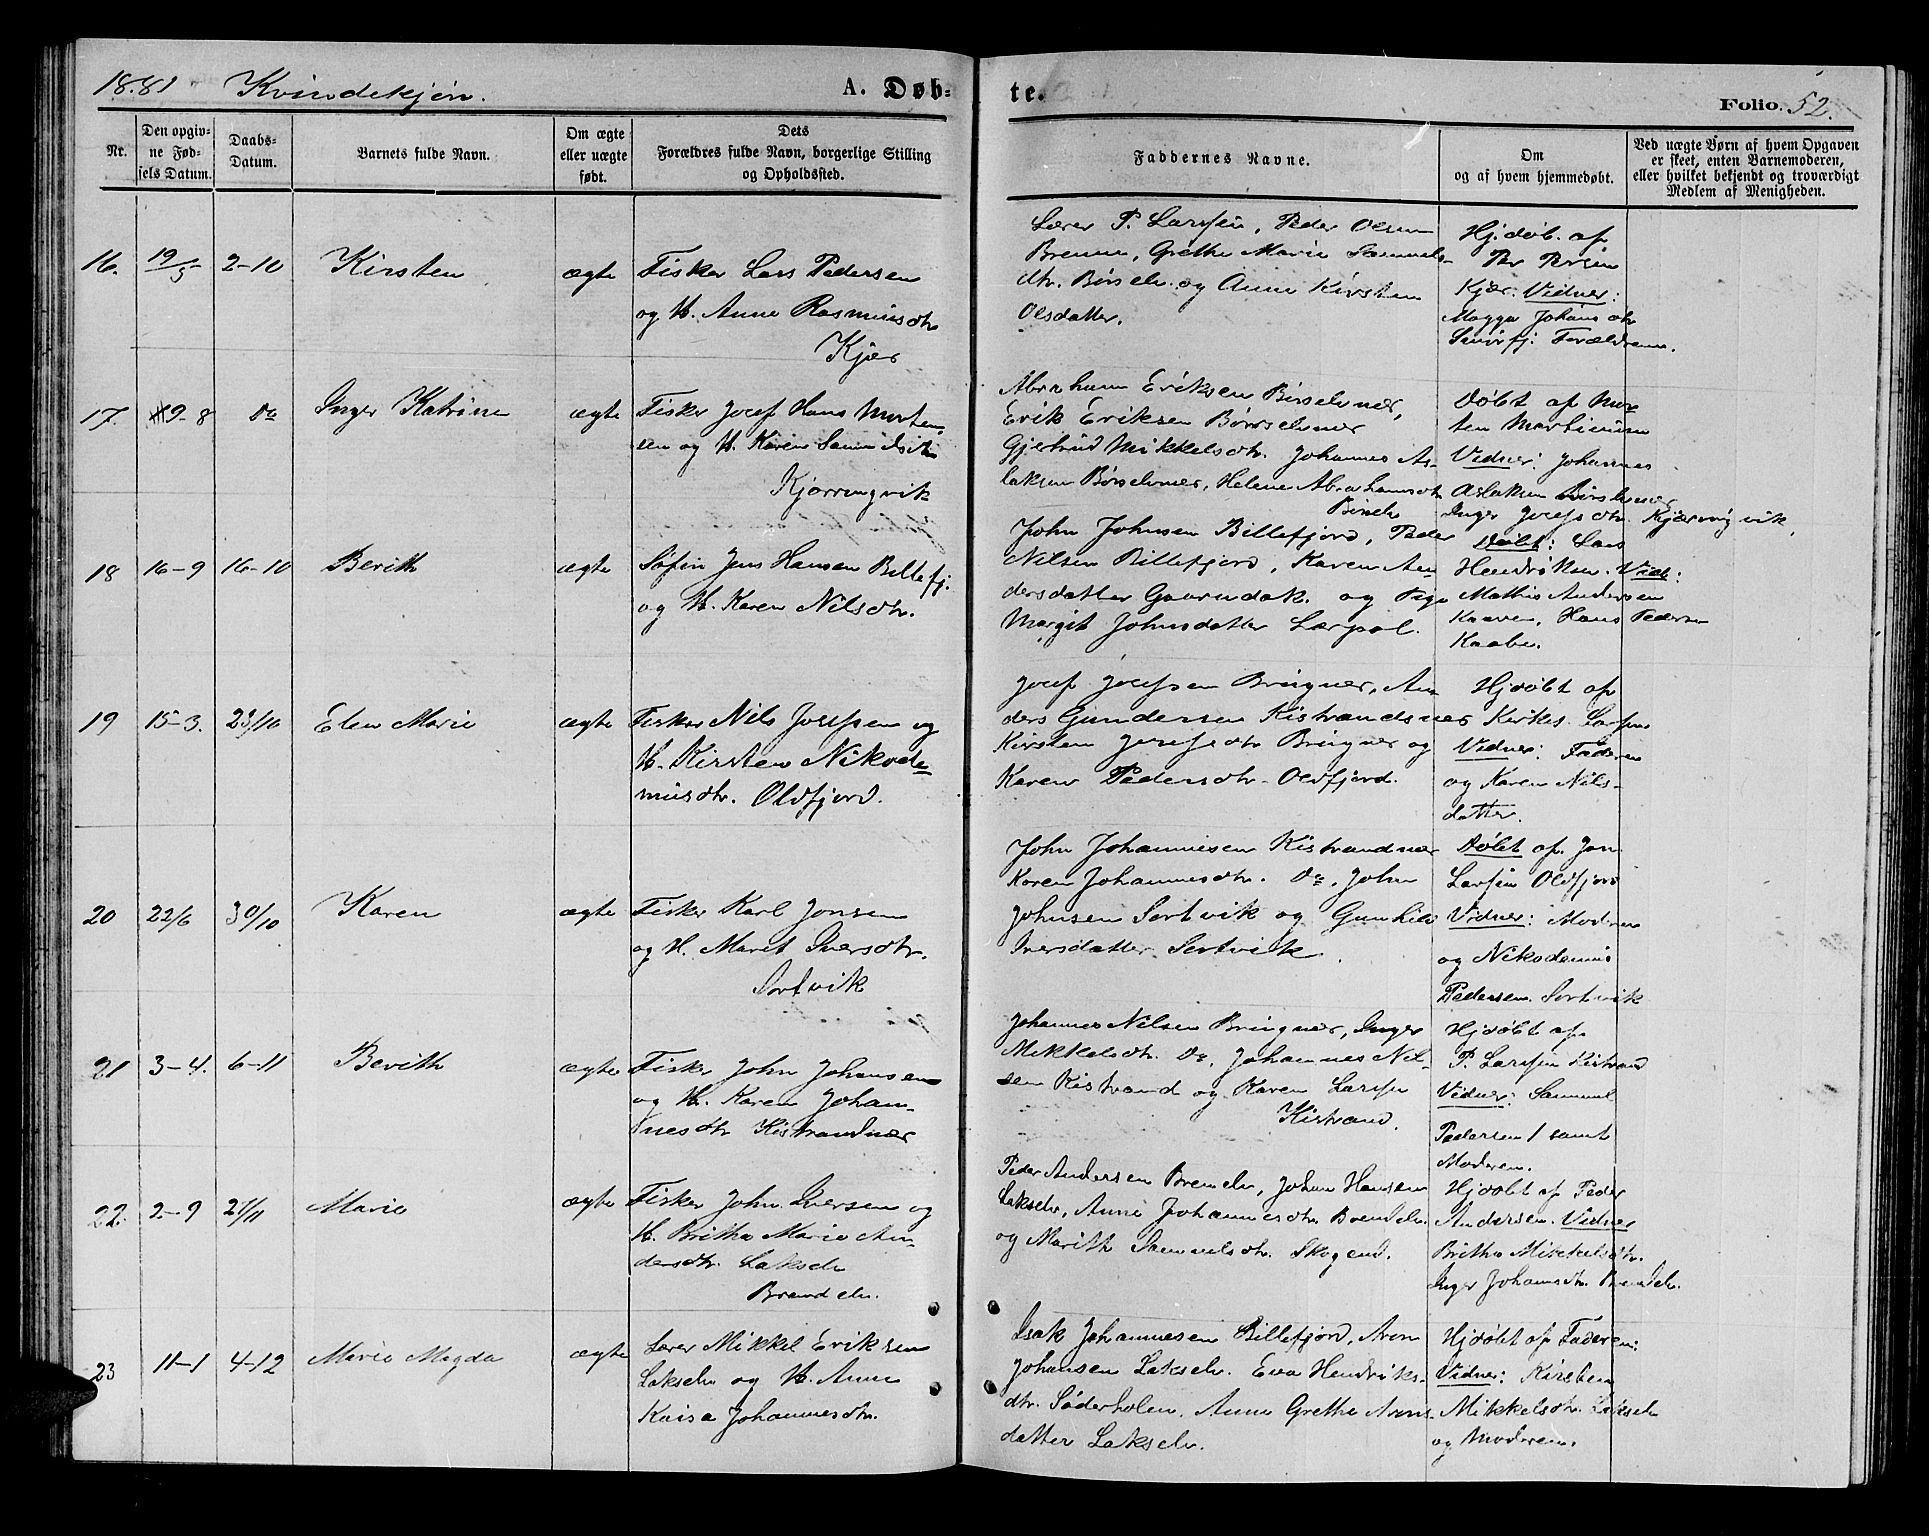 1881 Kvindekjøn. A. Døb-
te. Folio. 52.
Nr.
Den opgiv-
ne Fød-
sels Datum.
Daabs-
Datum.
Barnets fulde Navn.
Om ægte
eller uægte
født.
Dets
Forældres fulde Navn, borgerlige Stilling
og Opholdssted.
Faddernes Navne.
Om
og af hvem hjemmedøbt.
Ved uægte Børn af hvem Opgaven
er skeet, enten Barnemoderen,
eller hvilket bekjendt og troværdigt
Medlem af Menigheden.
16. 19/5 2-10 Kirsten ægte
Fisker Lars Pedersen
og H. Anne Rasmusdtr
Kjær
Lærer P. Larssen, Peder Olsen
Brenne, Grethe Marie Samuels-
dtr. Børselv og Anne Kirsten
Olsdatter.
Hj.døb. af
Per Persen
Kjær. Vidner:
Magga Johansdtr
Smørfj. Forældrene.
17. 9-8 Do Inger Katrine ægte
Fisker Josef Hans Morten-
sen og H. Karen Samuelsdtr
Kjærringvik
Abraham Eriksen Børselvnær,
Erik Eriksen Børselvnær
Gjertrud Mikkelsdtr. Johannes As-
laksen Børselvnær, Helene Abrahamsdtr
Børselv
Døbt af Mor-
ten Mortensen
Vidner: Johannes
Aslaksen Børselvnær
Inger Josefsdtr. Kjærringvik,
18 16-9 16-10 Berith ægte
Søfin Jens Hansen Billefj.
og H. Karen Nilsdtr.
John Johnsen Billefjord, Peder
Nilsen Billefjord, Karen An-
dersdatter Goarudak. og Pige
Margit Johnsdatter Lærpol.
Døbt: Lars
Hendriksen. Vid:
Mathis Andersen
Kaaven, Hans Pedersen
Kaaben.
19 15-3. 23/10 Elen Marie ægte
Fisker Nils Josefsen og
H. Kirsten Nikode-
musdtr. Oldfjord.
Josef Josefsen Bringnær, An-
ders Gundersen Kistrandsnær
Kirsten Josefsdtr Bringnær og
Karen Pedersdtr. Oldfjord.
Hjdøbt af
Kirkes. Larssen
Vidner: Faderen
og Karen Nils-
datter.
20 22/6 30/10 Karen ægte
Fisker Karl Jonsen
og H. Marit Iversdtr.
Sortvik
John Johannesen Kistrandnær
Karen Johannesdtr. Do, John
Johnsen Sortvik og Gunhild
Iversdatter Sortvik.
Døbt af Jon
Larsen Oldfjord
Vidner: Moderen
og Nikodemus
Pedersen. Sortvik
21 3-4. 6-11 Berith ægte
Fisker John Johansen
og H. Karen Johan-
nesdtr Kistrandnær
Johannes Nilsen Bringnær, Inger
Mikkelsdtr. Do, Johannes Nil-
sen Kistrand og Karen Larssen
Kistrand.
Hjdøbt af
P. Larssen Kistrand
Vidner: Samuel
Pedersen 1 samt
Moderen.
22. 2-9 27/11 Marie ægte
Fisker John Iversen og
H. Britha Marie An-
dersdtr. Lakselv
Brendelv.
Peder Andersen Brendelv, Johan Hansen
Lakselv, Anne Johannesdtr. Brendelv
og Marith Samuelsdtr. Skogend.
Hjdøbt af Peder
Andersen. Vidner
Britha Mikkelsdtr.
Inger Johansdtr. Brendelv.
23 11-1 4-12 Marie Magda ægte
Lærer Mikkel Eriksen
Lakselv og H. Anne
Kaisa Johannesdtr.
Isak Johannesen Billefjord, Aron
Johansen Lakselv. Eva Hendriks-
dtr. Söderholen, Anne Grethe Arons-
datter Lakselv.
Hjdøbt af Faderen:
Vidner: Kirsten
Mikkelsdtr. Lakselv
og Moderen.